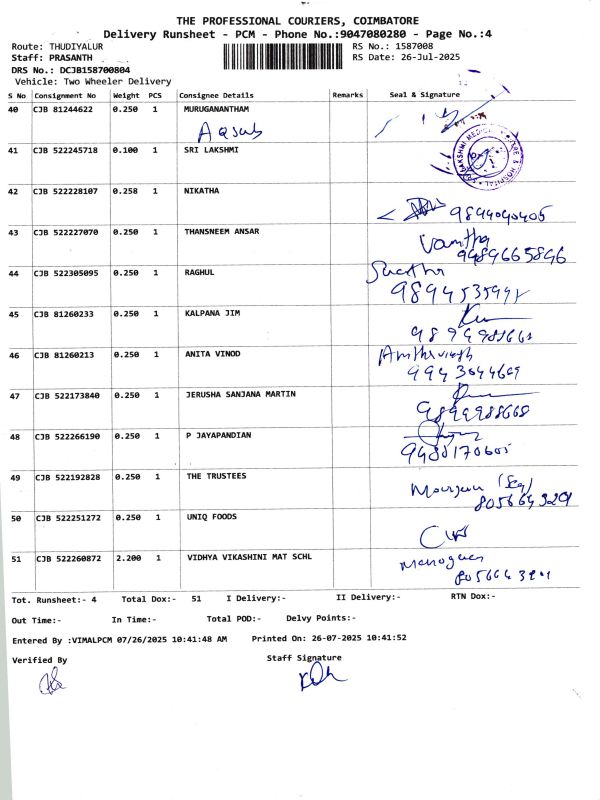 THE PROFESSIONAL COURIERS, COIMBATORE
Delivery Runsheet - PCM - Phone No.:9047080280 - Page No.:4
Route: THUDIYALUR RS No.: 1587008
Staff: PRASANTH RS Date: 26-Jul-2025
DRS No.: DCJB158700804
Vehicle: Two Wheeler Delivery
S No Consignment No Weight PCS Consignee Details Remarks Seal & Signature
40 CJB 81244622 0.250 1 MURUGANANTHAM
41 CJB 522245718 0.100 1 SRI LAKSHMI
42 CJB 522228107 0.258 1 NIKATHA
43 CJB 522227070 0.250 1 THANSNEEM ANSAR
Vanitha
9489665896
44 CJB 522305095 0.250 1 RAGHUL
45 CJB 81260233 0.250 1 KALPANA JIM
46 CJB 81260213 0.250 1 ANITA VINOD
47 CJB 522173840 0.250 1 JERUSHA SANJANA MARTIN
48 CJB 522266190 0.250 1 P JAYAPANDIAN
9480170605
49 CJB 522192828 0.250 1 THE TRUSTEES
50 CJB 522251272 0.250 1 UNIQ FOODS
51 CJB 522260872 2.200 1 VIDHYA VIKASHINI MAT SCHL
Tot. Runsheet:- 4 Total Dox:- 51 I Delivery:- II Delivery:- RTN Dox:-
Out Time:- In Time:- Total POD:- Delvy Points:-
Entered By :VIMALPCM 07/26/2025 10:41:48 AM Printed On: 26-07-2025 10:41:52
Verified By Staff Signature